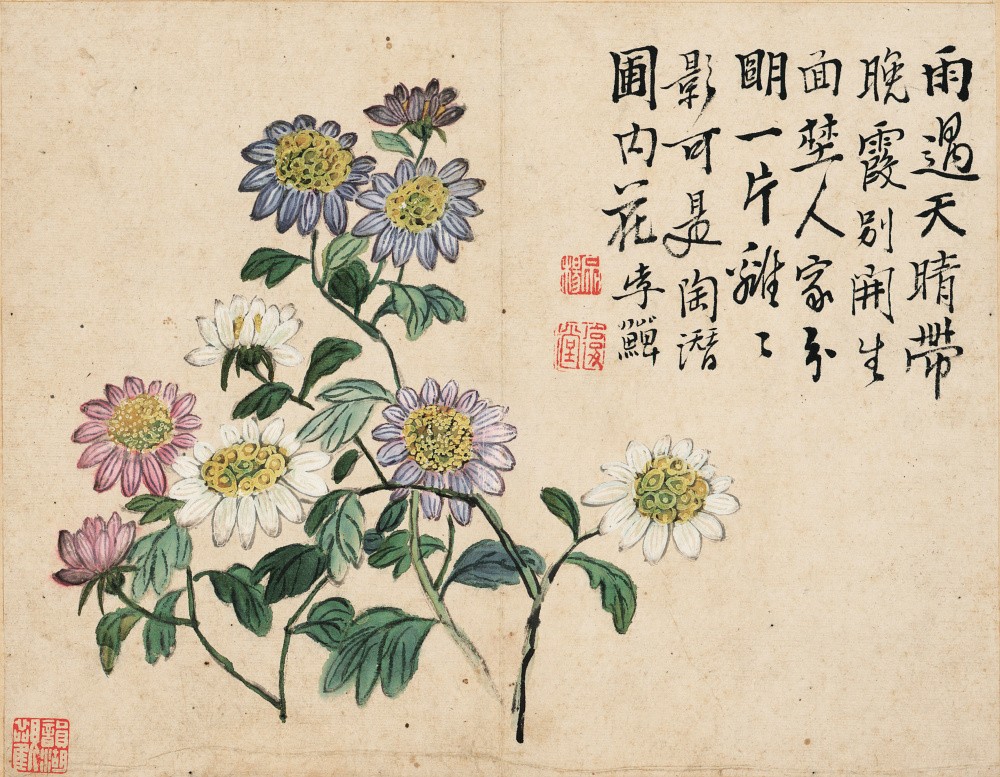 雨過天晴帶
晚霞別開生
面埜人家分
眀一片離〻
影可是陶潛
圃内花李鱓